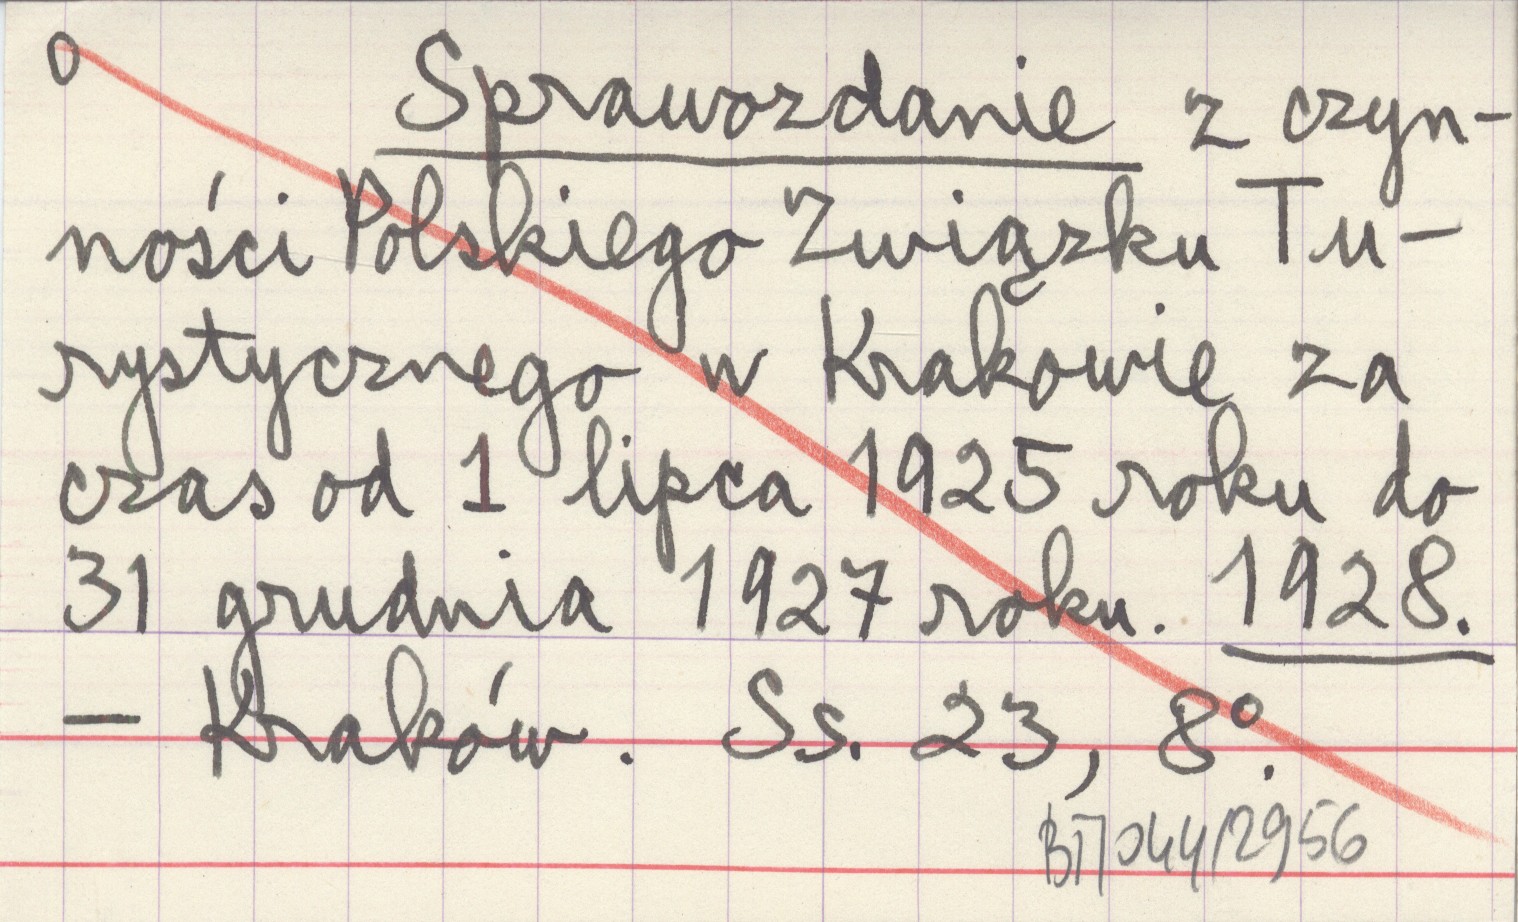 0
Sprawozdanie z czyn-
ności Polskiego Związku Tu-
rystycznego w Krakowie za
czas od 1 lipca 1925 roku do
31 grudnia 1927 roku. 1928.
— Kraków. Ss. 23, 8°.